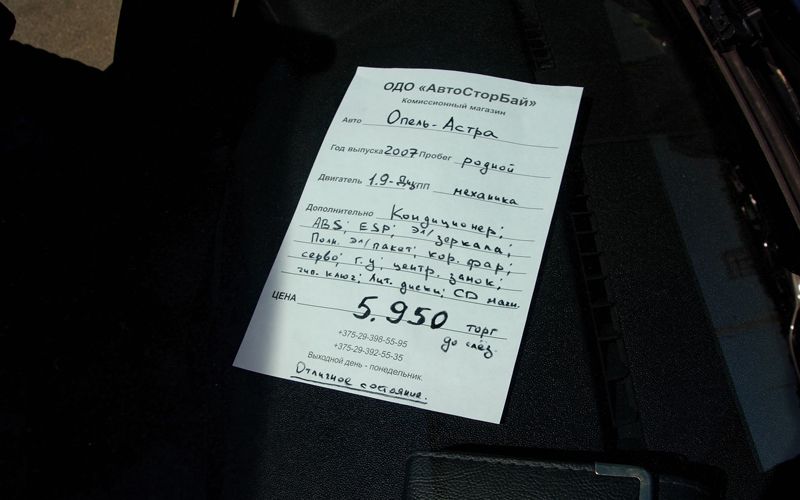 ОДО «АвтоСторБай»
Комиссионный магазин
Авто Опель-Астра
Год выпуска 2007 Пробег родной
Двигатель 1.9- КПП механика
Дополнительно Кондиционер;
ABS; ESP; эл/зеркала;
Полн. эл/пакет; кор. фар;
серво; г.у; центр. замок;
чип. ключ; Лит. диски; CD магн.
ЦЕНА 5.950 торг
до слёз.
+375-29-398-55-95
+375-29-392-55-35
Выходной день - понедельник
Отличное состояние.